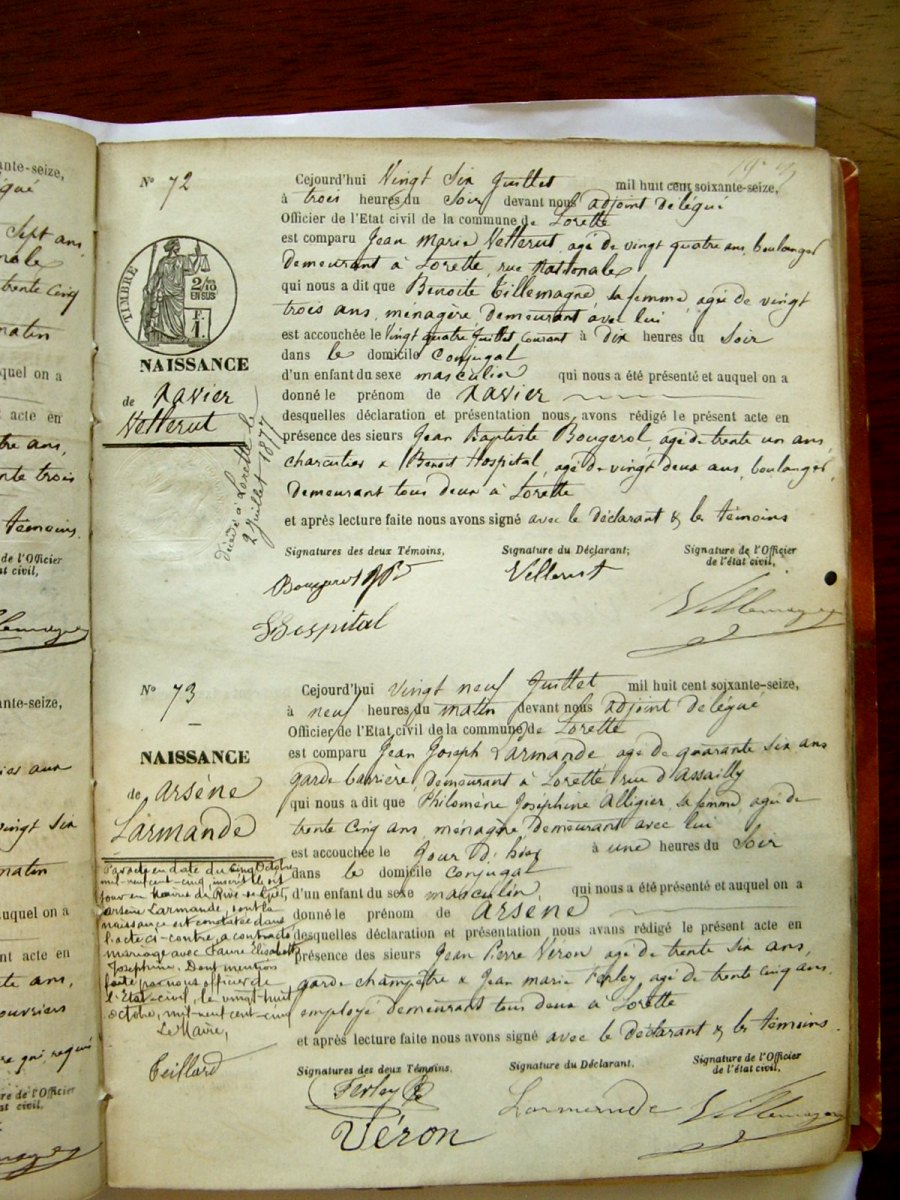 N° 72
TIMBRE
2/10
EN SUS
F.
1.
NAISSANCE
de Xavier
Vetterut
Décédé à Lorette le
2 Juillet 1877
Cejourd'hui Vingt Six Juillet mil huit cent soixante-seize,
à trois heures du Soir devant nous adjoint délégué
Officier de l'Etat civil de la commune de Lorette
est comparu Jean Marie Vetterut, agé de vingt quatre ans, boulanger
demeurant à Lorette, rue Nationale
qui nous a dit que Benoite Villemagne, sa femme, agée de vingt
trois ans, ménagère demeurant avec lui
est accouchée le vingt quatre Juillet courant à Dix heures du Soir
dans le domicile conjugal
d'un enfant du sexe masculin qui nous a été présenté et auquel on a
donné le prénom de Xavier
desquelles déclaration et présentation nous avons rédigé le présent acte en
présence des sieurs Jean Baptiste Bougerol, agé de trente un ans,
charcutier & Benoit Hospital, agé de vingt deux ans, boulanger,
demeurant tous deux à Lorette
et après lecture faite nous avons signé avec le déclarant & les témoins
Signatures des deux Témoins, Signature du Déclarant; Signature de l'Officier
de l'état civil,
Bougerol Vetterut Villemagne
Hospital
N° 73
NAISSANCE
de Arsène
Larmande
Par acte en date du cinq Octobre
mil-neuf-cent-cinq, inscrit le dit
jour en Mairie de Rive-de-Gier,
Arsène Larmande, dont la
naissance est constatée dans
l'acte ci-contre, a contracté
mariage avec Faure Elisabeth
Josephine. Dont mention
faite par nous officier de
l'Etat-civil, le vingt huit
octobre, mil-neuf-cent-cinq
Le Maire,
Teillard
Cejourd'hui Vingt neuf Juillet mil huit cent soixante-seize,
à neuf heures du matin devant nous adjoint délégué
Officier de l'Etat civil de la commune de Lorette
est comparu Jean Joseph Larmande agé de quarante six ans
garde barrière, demeurant à Lorette rue d'Assailly
qui nous a dit que Philomène Josephine Alligier, sa femme, agée de
trente cinq ans, ménagère demeurant avec lui
est accouchée le Jour D'hier à une heures du Soir
dans le domicile conjugal
d'un enfant du sexe masculin qui nous a été présenté et auquel on a
donné le prénom de Arsène
desquelles déclaration et présentation nous avons rédigé le présent acte en
présence des sieurs Jean Pierre Véron agé de trente six ans,
garde champêtre & Jean Marie Ferley, agé de trente cinq ans,
employé demeurant tous deux à Lorette
et après lecture faite nous avons signé avec le déclarant & les témoins.
Signatures des deux Témoins, Signature du Déclarant. Signature de l'Officier
de l'état civil,
Ferley Larmande Villemagne
Véron